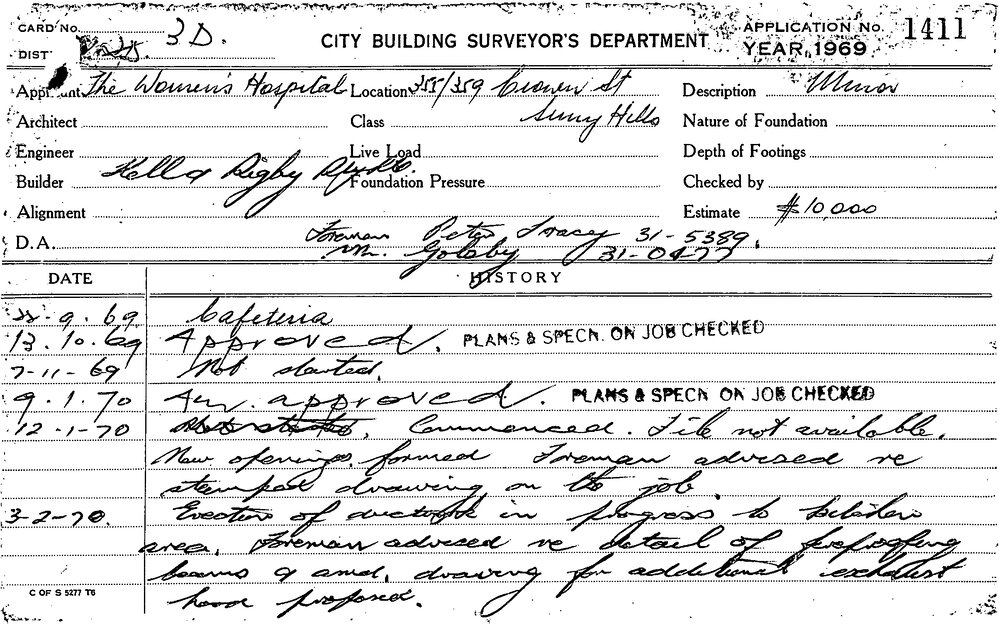 CARD No. 3D. CITY BUILDING SURVEYOR'S DEPARTMENT APPLICATION No. 1411
DIST YEAR, 1969
Applicant The Women's Hospital Location 355/359 Crown St Description Minor
Architect Class Surry Hills Nature of Foundation
Engineer Live Load Depth of Footings
Builder Kell & Rigby Foundation Pressure Checked by
Alignment Estimate $10,000
D.A. Foreman Peter Tracey 31-5389.
Mr. Golsby 31-0477
DATE HISTORY
9. 69 Cafeteria
13. 10. 69 Approved. PLANS & SPECN. ON JOB CHECKED
7-11-69 Not started.
9. 1. 70 Am. approved. PLANS & SPECN ON JOB CHECKED
12-1-70 Commenced. File not available.
New openings formed Foreman advised re
stamped drawing on the job.
3-2-70. Erection of ductwork in progress to kitchen
area. Foreman advised re detail of fireproofing
beams & amd. drawing for additional exhaust
hood proposed.
C OF S 5277 T6